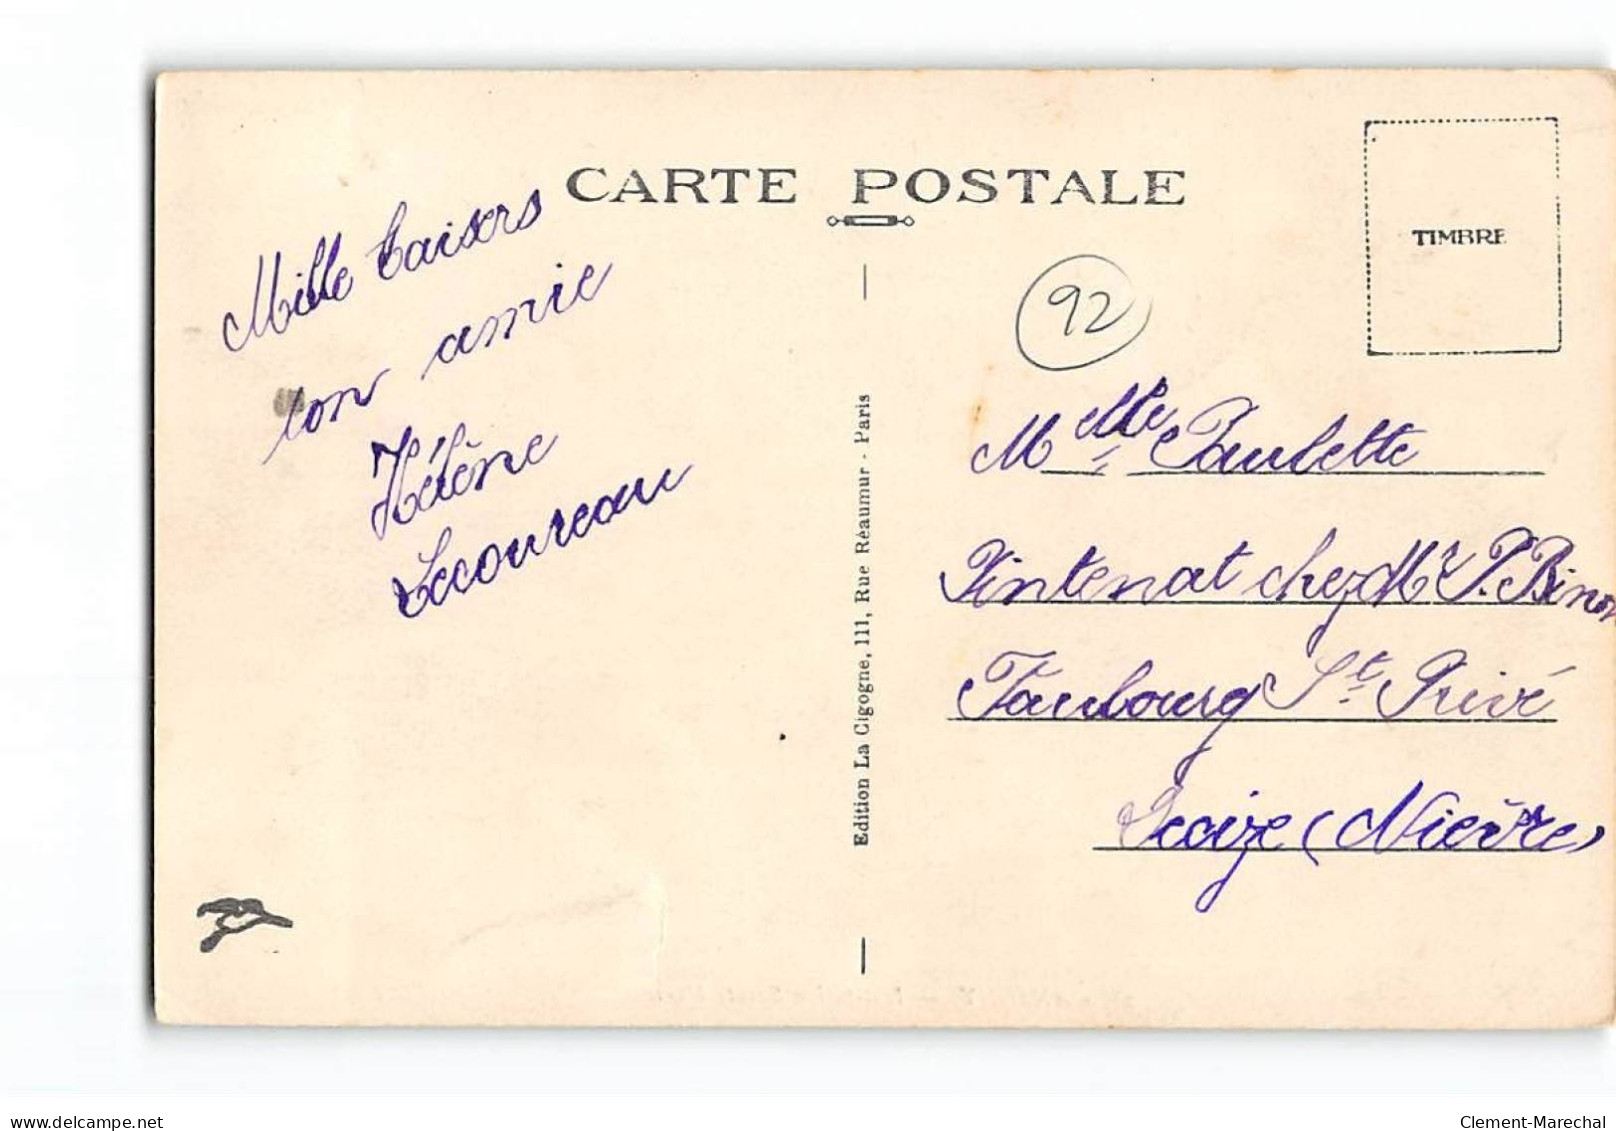 CARTE POSTALE
TIMBRE
92
Mille baisers
ton amie
Hélène
Lecoureau
Edition La Cigogne, 111, Rue Réaumur - Paris
Melle Paulette
Pintenat chez Mr P. Binon
Faubourg St Privé
Decize (Nièvre)
www.delcampe.net
Clement-Marechal